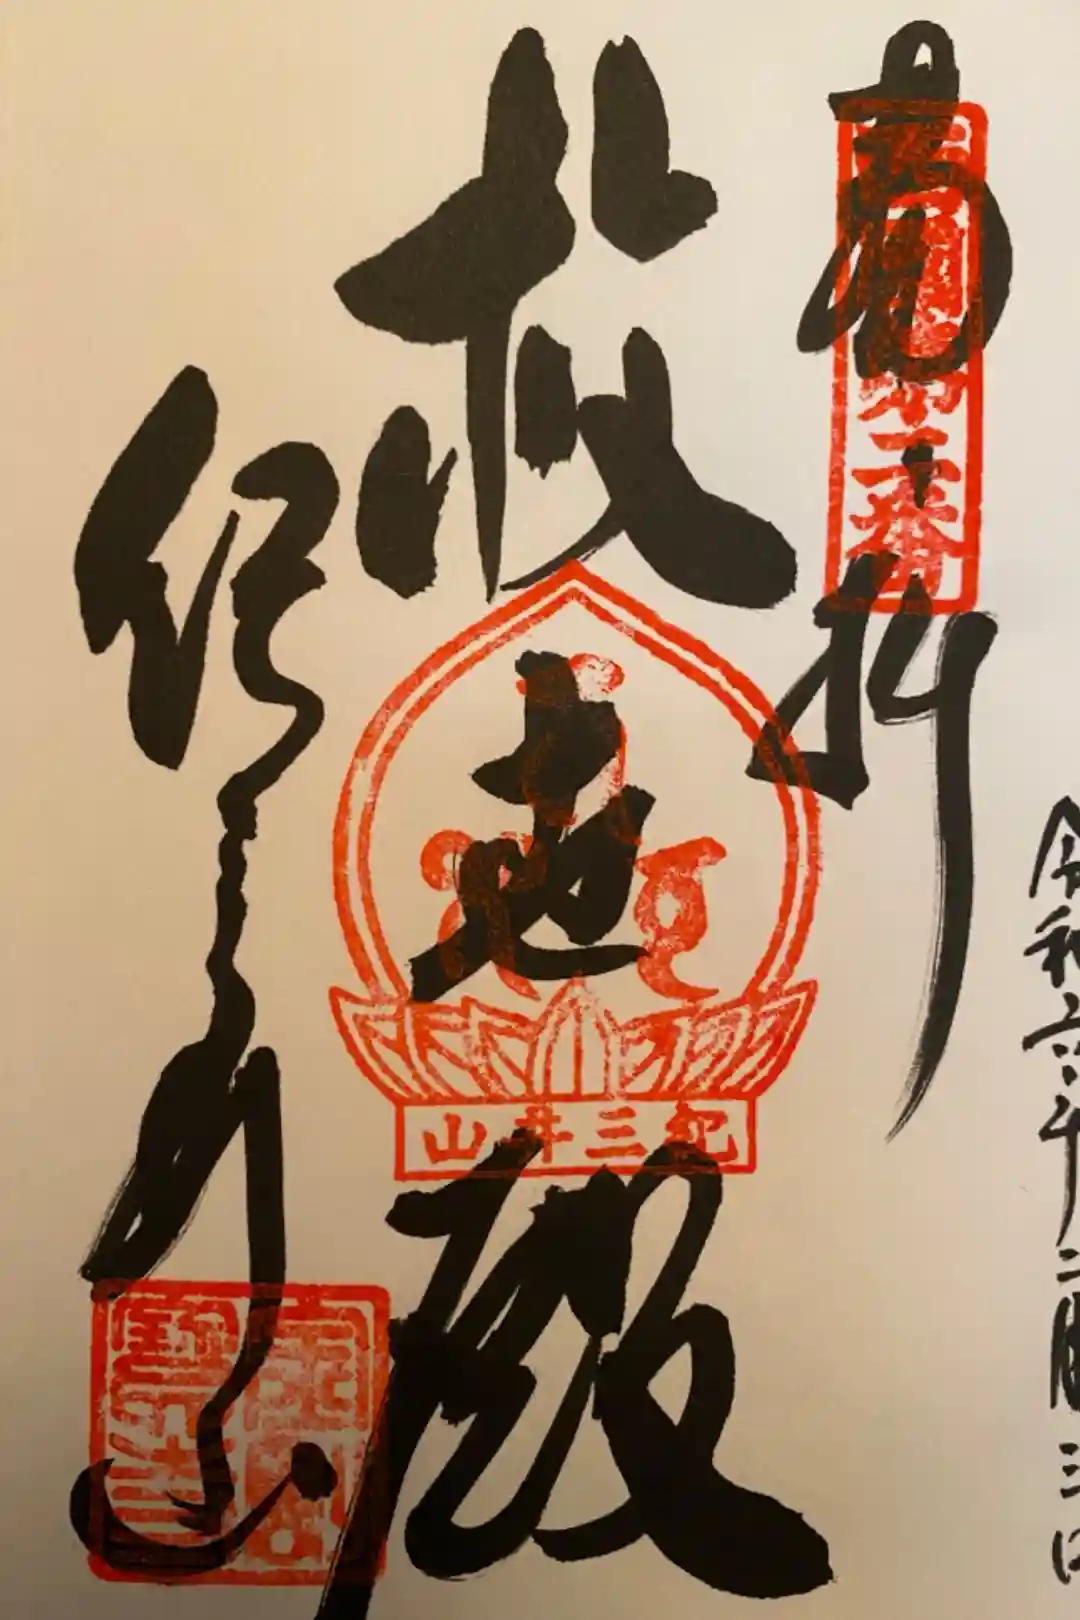 令和六年二月三日
奉拝
西国第二番
救世殿
紀三井山
紀三井寺